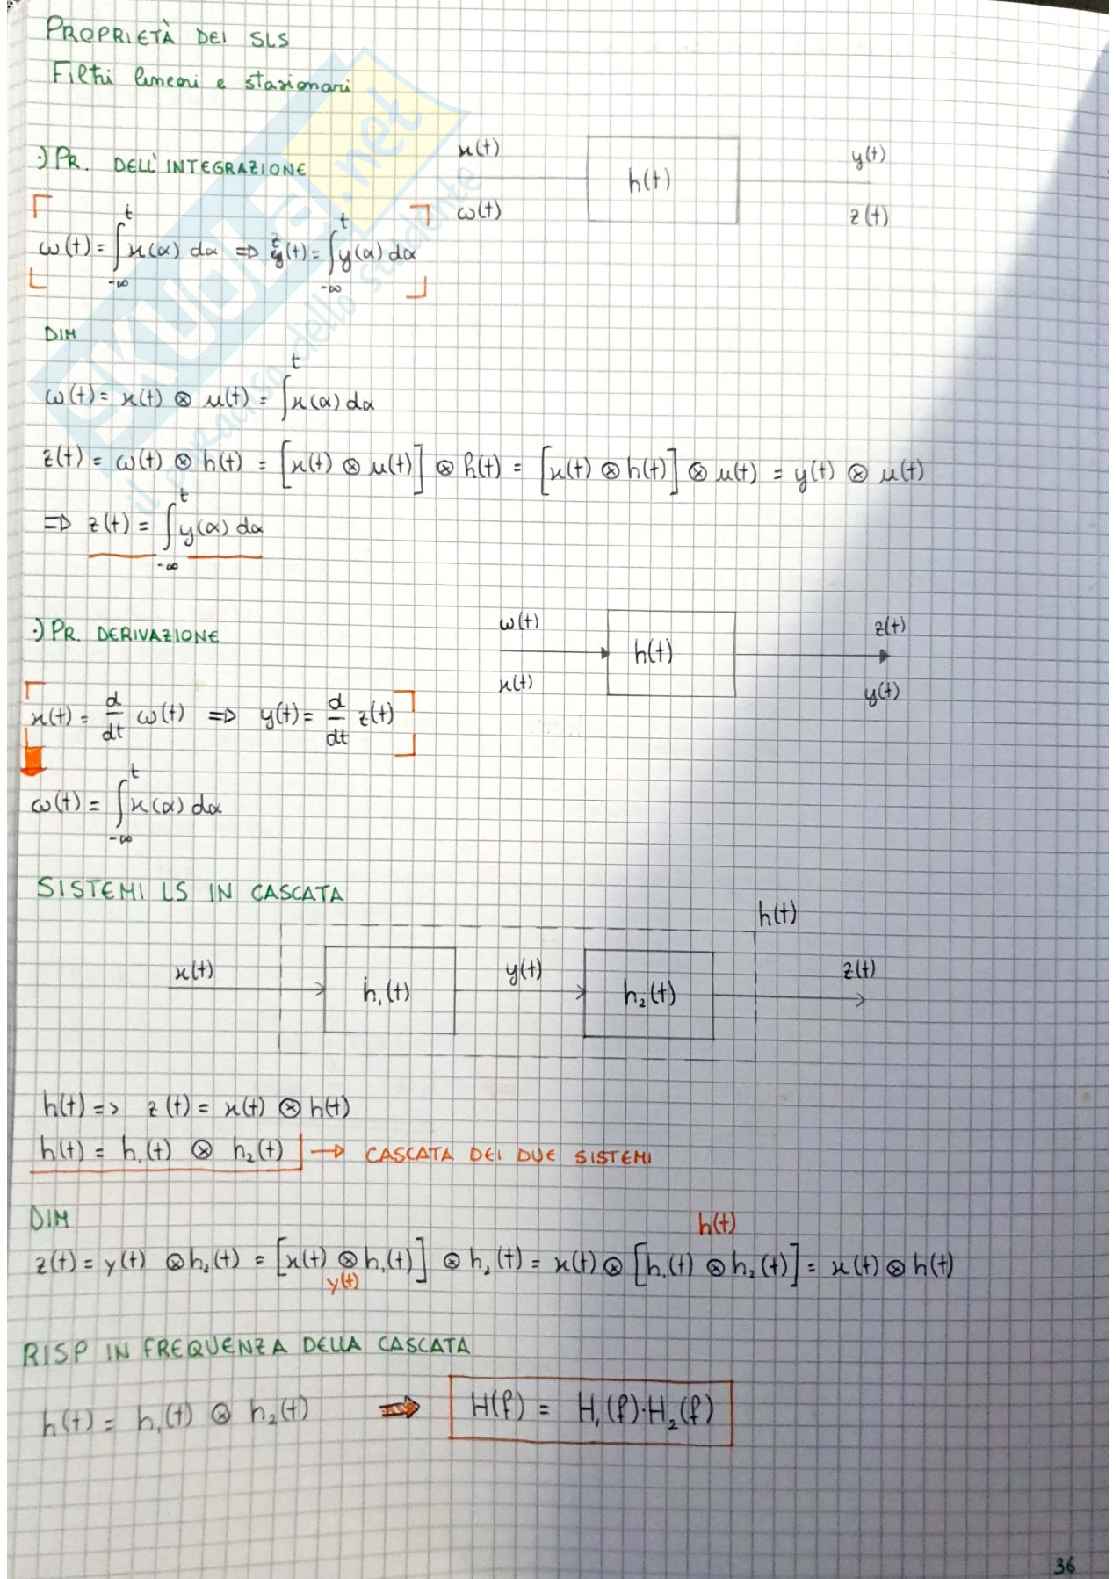 PROPRIETÀ DEI SLS
Filtri lineari e stazionari
:) PR. DELL'INTEGRAZIONE
x(t)
ω(t)
h(t)
y(t)
z(t)
ω(t) = ∫_{-∞}^{t} x(α) dα => z(t) = ∫_{-∞}^{t} y(α) dα
DIM
ω(t) = x(t) ⊗ u(t) = ∫^{t} x(α) dα
z(t) = ω(t) ⊗ h(t) = [x(t) ⊗ u(t)] ⊗ h(t) = [x(t) ⊗ h(t)] ⊗ u(t) = y(t) ⊗ u(t)
=> z(t) = ∫_{-∞}^{t} y(α) dα
:) PR. DERIVAZIONE
ω(t)
x(t)
h(t)
z(t)
y(t)
x(t) = d/dt ω(t) => y(t) = d/dt z(t)
ω(t) = ∫_{-∞}^{t} x(α) dα
SISTEMI LS IN CASCATA
h(t)
x(t)
h₁(t)
y(t)
h₂(t)
z(t)
h(t) => z(t) = x(t) ⊗ h(t)
h(t) = h₁(t) ⊗ h₂(t) → CASCATA DEI DUE SISTEMI
DIM
h(t)
z(t) = y(t) ⊗ h₂(t) = [x(t) ⊗ h₁(t)] ⊗ h₂(t) = x(t) ⊗ [h₁(t) ⊗ h₂(t)] = x(t) ⊗ h(t)
y(t)
RISP IN FREQUENZA DELLA CASCATA
h(t) = h₁(t) ⊗ h₂(t) => H(f) = H₁(f)·H₂(f)
36
SKUOLA.net
il paradiso dello studente